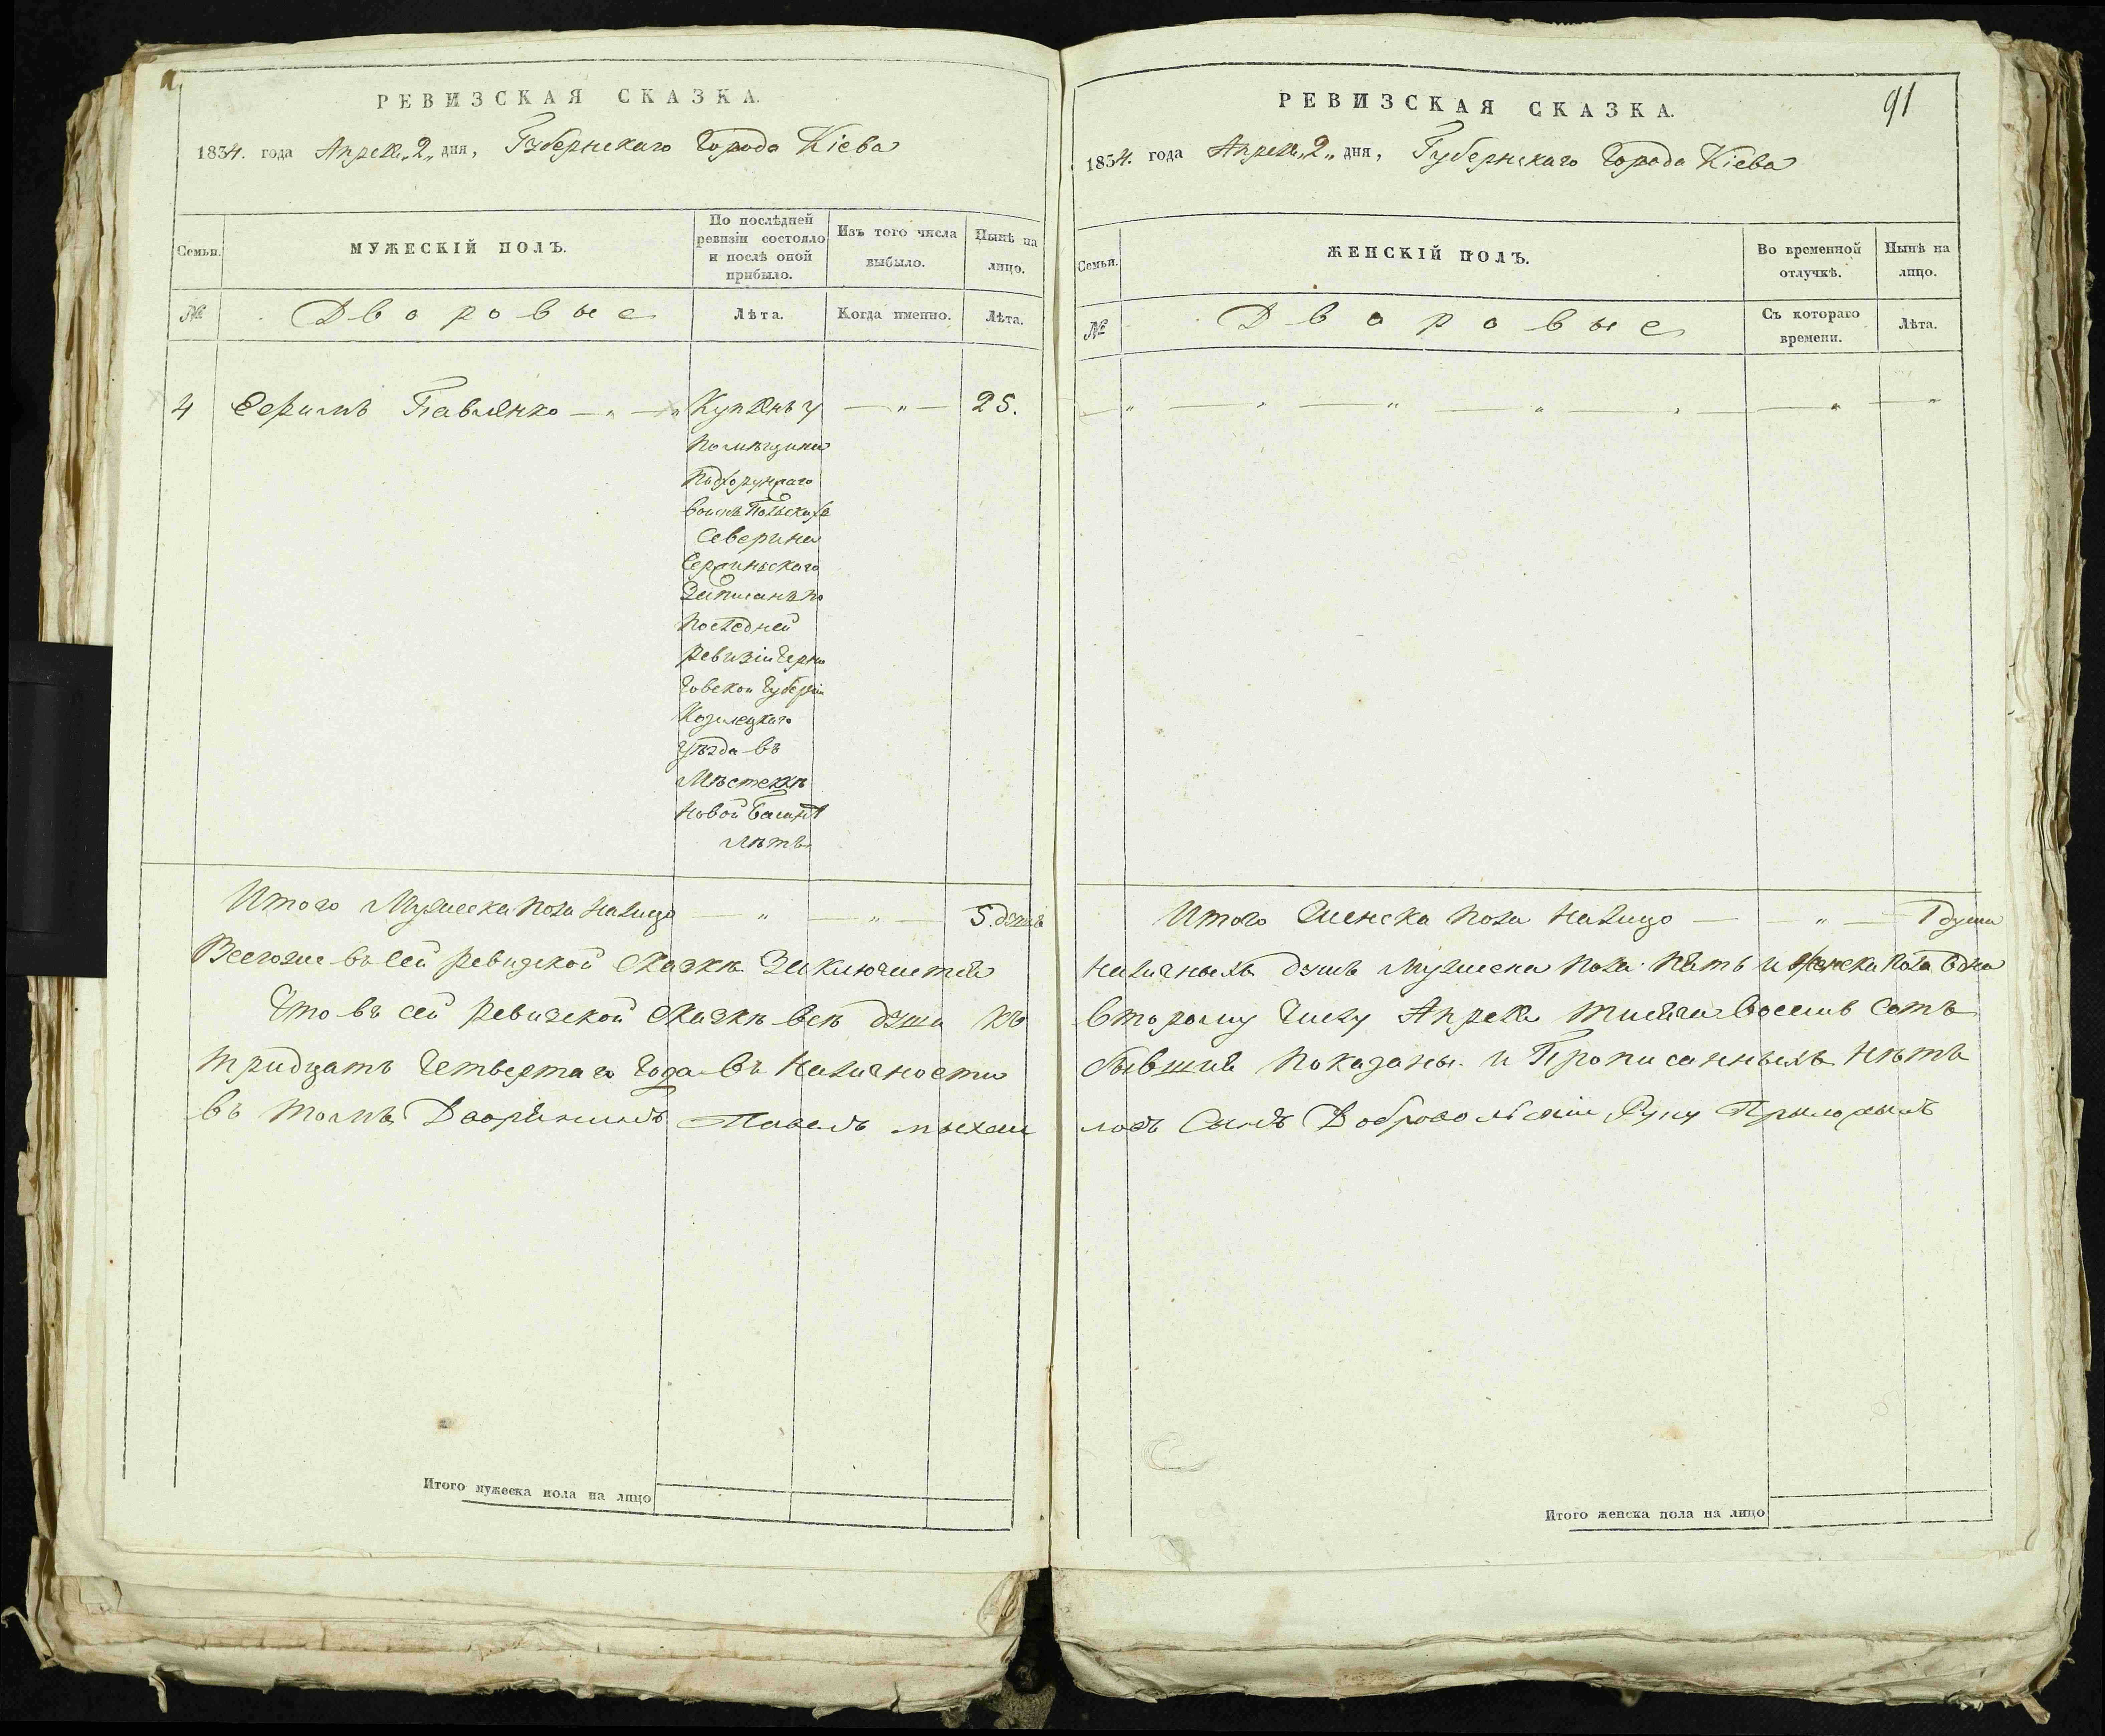 РЕВИЗСКАЯ СКАЗКА.
1834. года Апреля „2„ дня, Губернскаго Города Кіева
Семьи.
МУЖЕСКІЙ ПОЛЪ.
По послѣдней ревизіи состояло и послѣ оной прибыло.
Изъ того числа выбыло.
Нынѣ на лицо.
№
Дворовые
Лѣта.
Когда именно.
Лѣта.
4 Ефимъ Павленко — „ — Купленъ у — „ — 25.
Помѣщика
Подхорунжаго
войскъ Польскихъ
Северина
Записанъ по
последней
ревизіи Черни
говской Губерніи
Козелецкаго
Уѣзда въ
Мѣстечкѣ
Новой Басанѣ
лѣтъ
Итого Мужеска пола налицо — „ — „ — 5. душъ
Всегоже въ сей ревизской Сказкѣ Заключается
Что въ сей ревизской Сказкѣ всѣ души ко
тридцать четвертаго Года въ наличности
въ томъ Дворянинъ Павелъ михаи
Итого мужеска пола на лицо
РЕВИЗСКАЯ СКАЗКА.
91
1834. года Апреля „2„ дня, Губернскаго Города Кіева
Семьи.
ЖЕНСКІЙ ПОЛЪ.
Во временной отлучкѣ.
Нынѣ на лицо.
№
Дворовые
Съ котораго времени.
Лѣта.
Итого Женска пола налицо — „ — 1 душа
наличныхъ душъ Мужеска пола пять и женска пола одна
второму числу Апреля тысяча восемь сотъ
бывшия показаны. и Прописанныхъ нѣтъ
ловъ Сынъ Доброволскіи Руку Прыложылъ
Итого женска пола на лицо